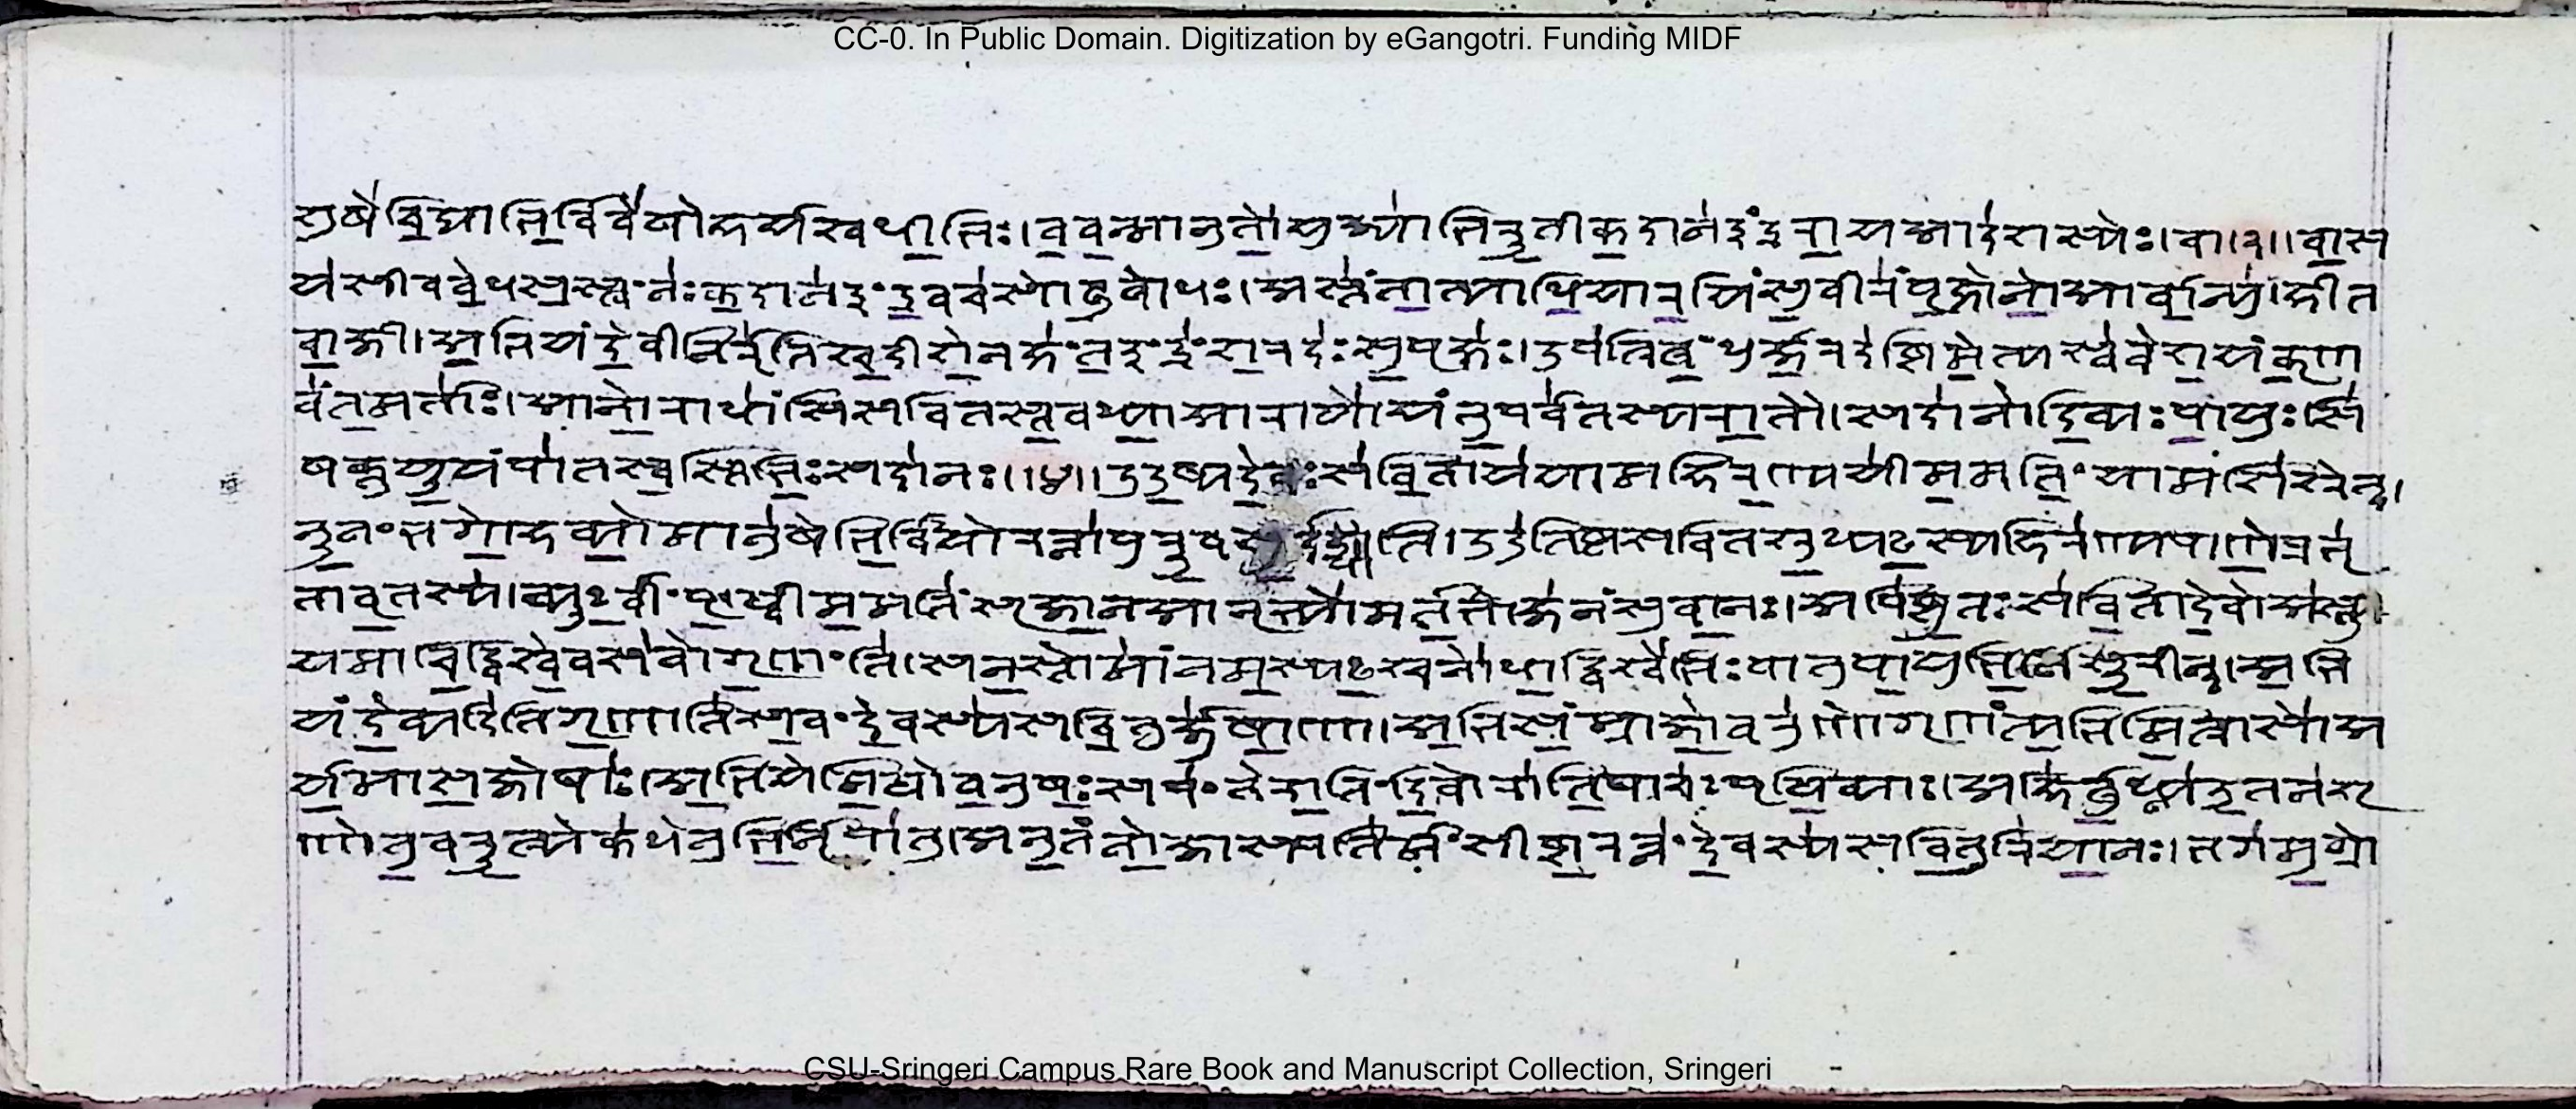 CC-0. In Public Domain. Digitization by eGangotri. Funding MIDF
शुषे चिद्याभिर्विवेषो हर्यश्व धीभिः। ववन्मा नु ते युज्याभिरूती कदा न इंद्र राय आ दशस्येः। वा।३॥ वास
यसीव वेधसस्त्वं नः कदा न इंद्र वचसो बुबोधः। अस्तं तात्या धिया रयिं सुवीरं पृक्षो नो अर्वा न्युहीत
वाजी। अभि यं देवी निरृतिश्चिदीशे नक्षंत इंद्रं शरदः सुपृक्षः। उप त्रिबंधुर्जरदष्टिमेत्यस्ववेशं यं कृण
वंत मर्ताः। आ नो राधांसि सवितस्तवध्या आ रायो यंतु पर्वतस्य रातौ। सदा नो दिव्यः पायुः सि
षक्तु यूयं पात स्वस्तिभिः सदा नः॥४॥ उदु ष्य देवः सविता ययाम हिरण्ययीममतिं यामशिश्रेत्।
नूनं भगो हव्यो मानुषेभिर्वि यो रत्ना पुरूवसुर्दधाति। उदु तिष्ठ सवितः श्रुध्यस्य हिरण्यपाणे प्रभृ
तावृतस्य। व्युर्वीं पृथ्वीममतिं सृजान आ नृभ्यो मर्तभोजनं सुवानः। अपि ष्टुतः सविता देवो अस्तु
यमा चिद्विश्वे वसवो गृणंति। स नः स्तोमांनमस्यश्चनो धाद्विश्वेभिः पातु पायुभिर्नि सूरीन्। अभि
यं देव्यदितिर्गृणाति सवं देवस्य सवितुर्जुषाणा। अभि सम्राजो वरुणो गृणंत्यभि मित्रासो अ
र्यमा सजोषाः। अभि ये मिथो वनुषः सपंते रातिं दिवो रातिषाचः पृथिव्याः। अहिर्बुध्न्य उत नः शृ
णोतु वरूत्र्येकधेनुभिर्नि पातु। अनु तंनो जास्पतिर्मंसीष्ट रत्नं देवस्य सवितुरियानः। भगमुग्रो
CSU-Sringeri Campus Rare Book and Manuscript Collection, Sringeri